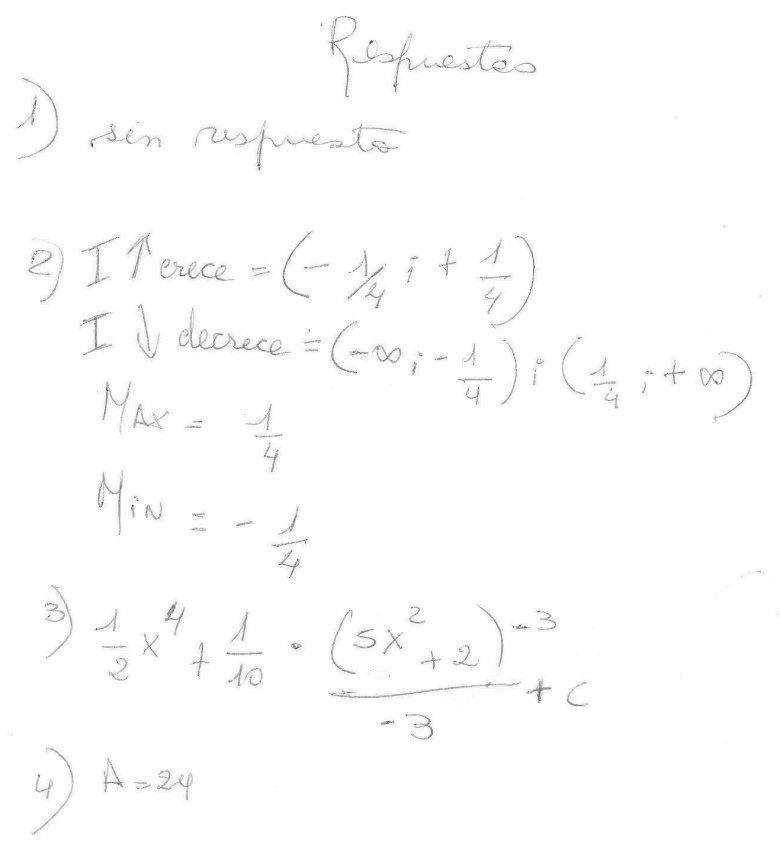 Respuestas
1) sin respuesta
2) I ↑ crece = (- 1/4 ; + 1/4)
I ↓ decrece = (-∞ ; - 1/4) ; (1/4 ; + ∞)
MAX = 1/4
MiN = - 1/4
3) 1/2 x^4 + 1/10 · (5x^2 + 2)^-3 / -3 + C
4) A = 24